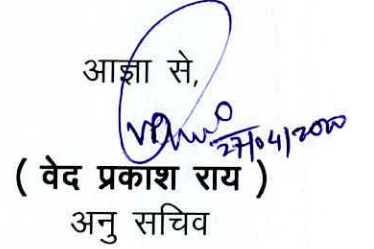 आज्ञा से,
27/04/2020
( वेद प्रकाश राय )
अनु सचिव